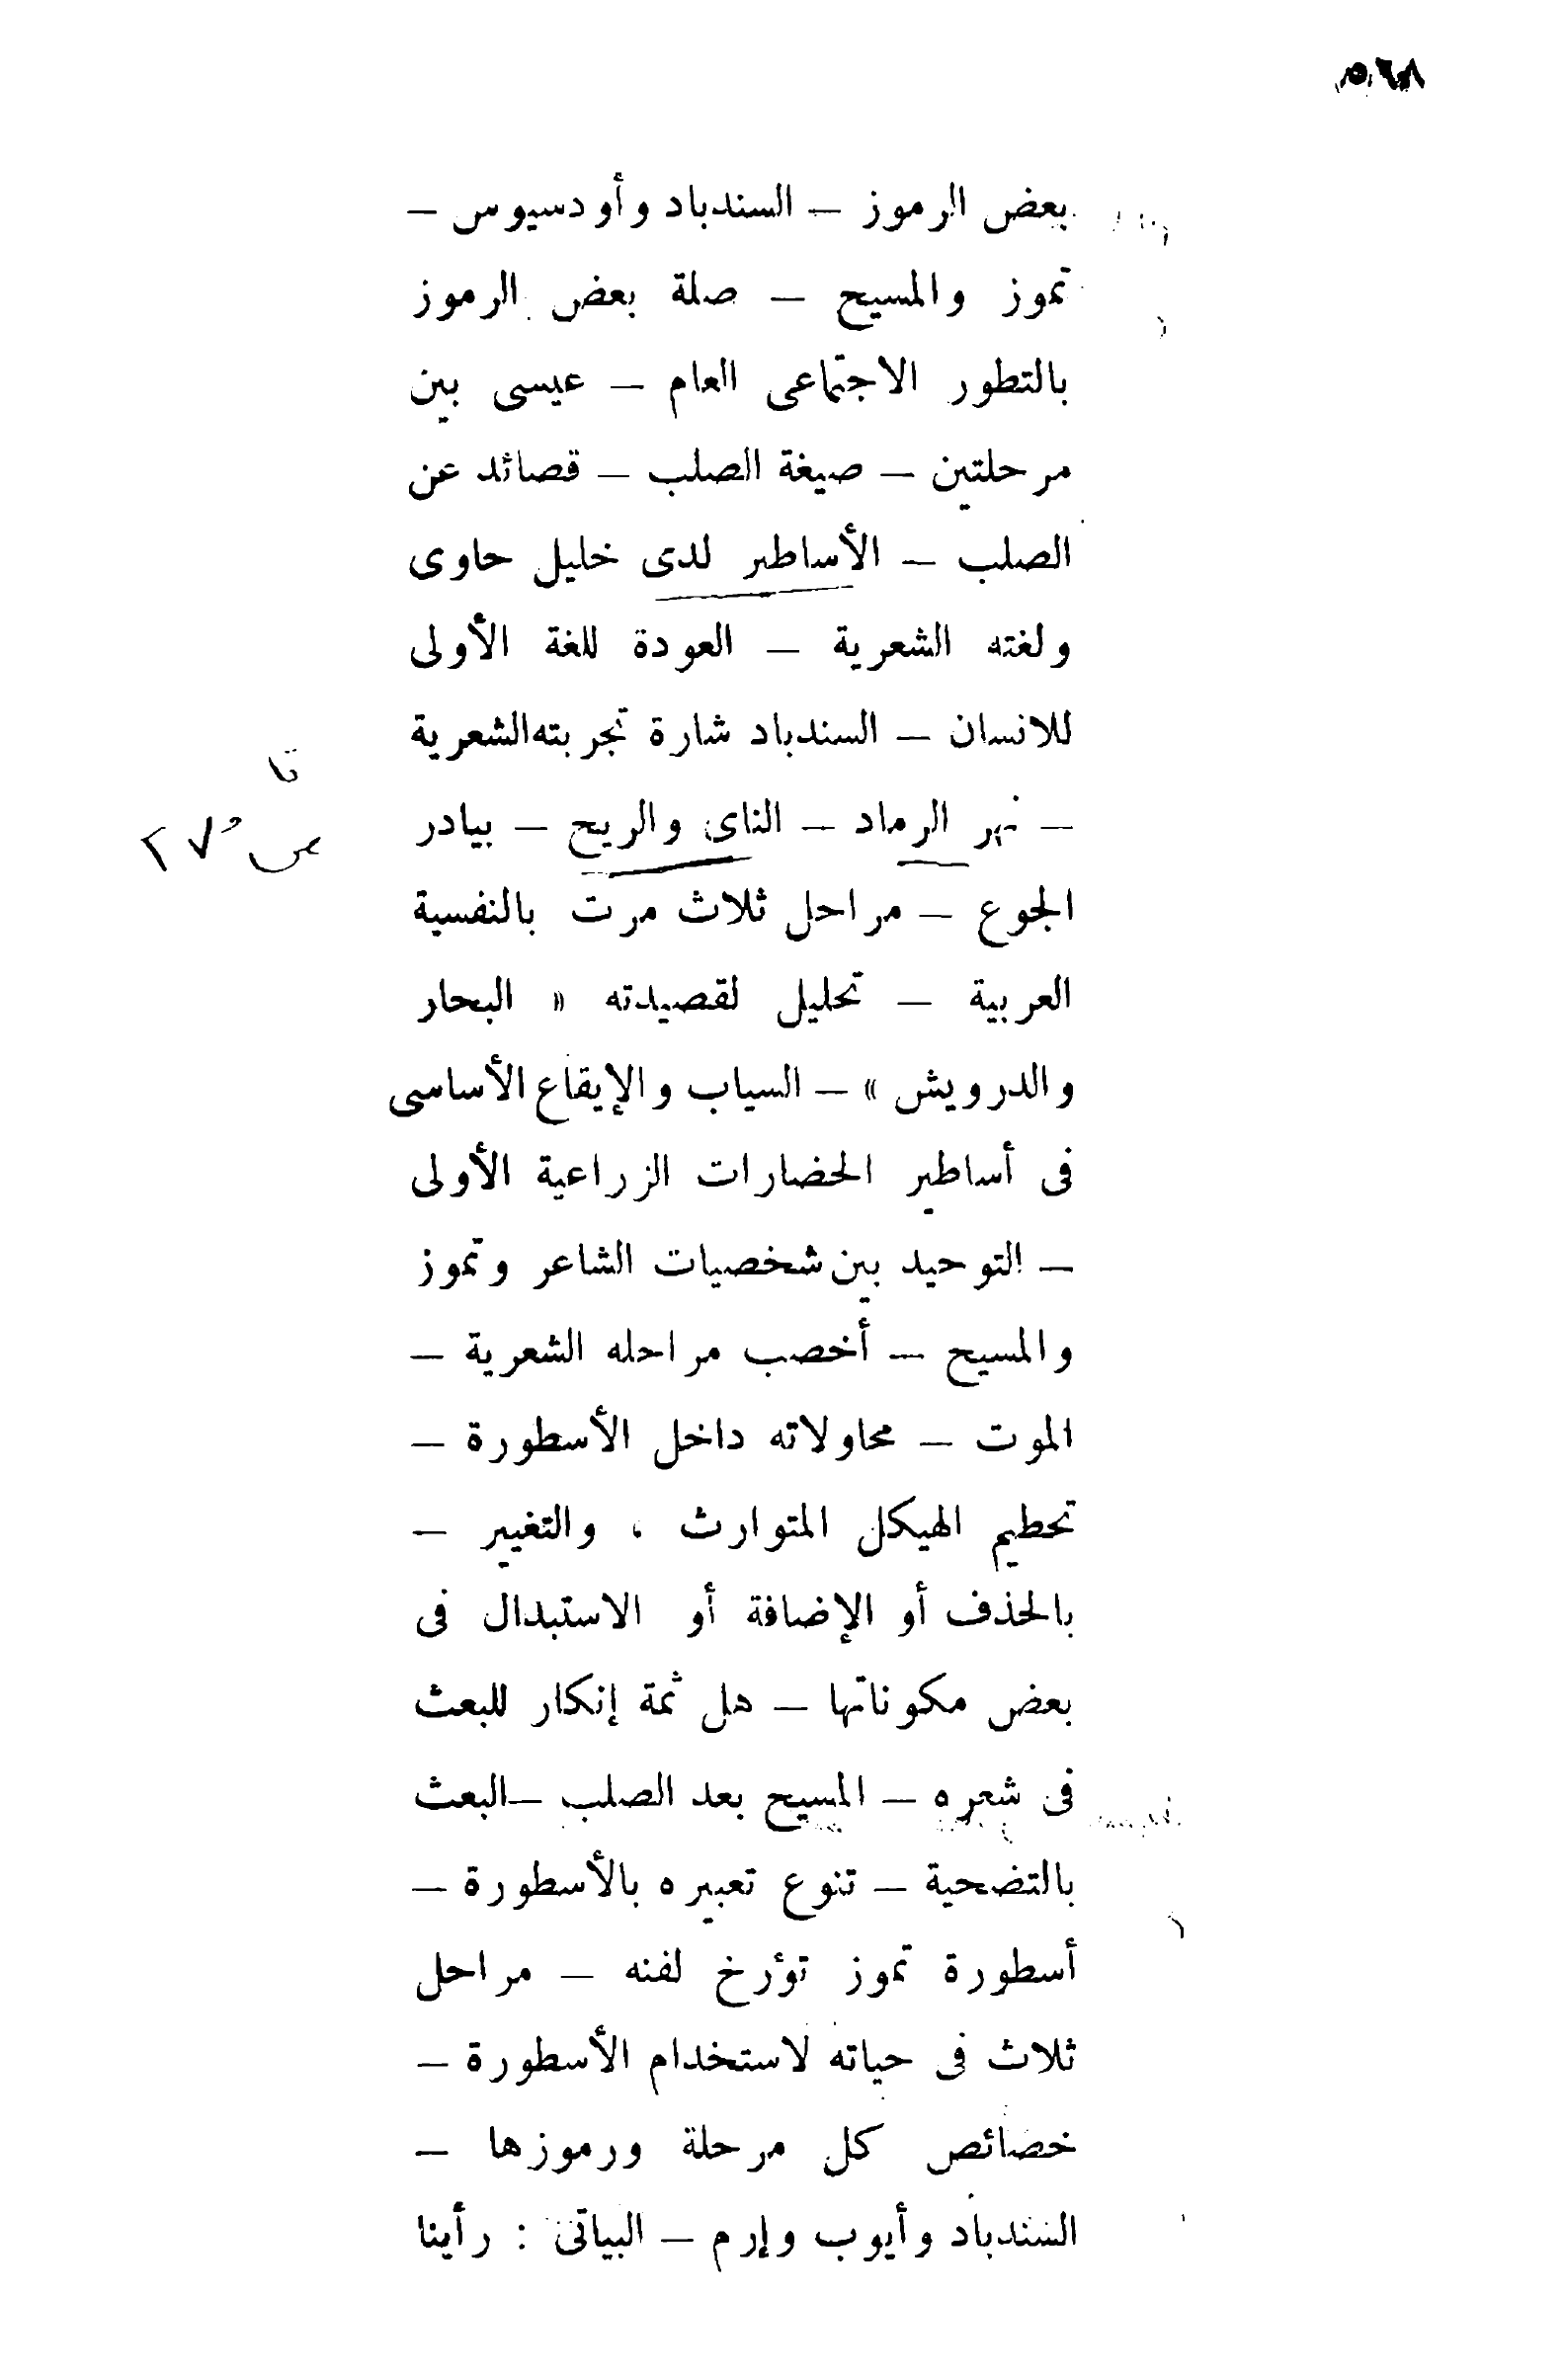 ٥٦٨
بعض الرموز – السندباد وأودسيوس –
تموز والمسيح – صلة بعض الرموز
بالتطور الاجتماعى العام – عيسى بين
مرحلتين – صيغة الصلب – قصائد عن
الصلب – الأساطير لدى خليل حاوى
ولغته الشعرية – العودة للغة الأولى
للانسان – السندباد شارة تجربته الشعرية
– نهر الرماد – الناى والريح – بيادر
الجوع – مراحل ثلاث مرت بالنفسية
العربية – تحليل لقصيدته « البحار
والدرويش » – السياب والإيقاع الأساسى
فى أساطير الحضارات الزراعية الأولى
– التوحيد بين شخصيات الشاعر وتموز
والمسيح – أخصب مراحله الشعرية –
الموت – محاولاته داخل الأسطورة –
تحطيم الهيكل المتوارث ، والتغيير –
بالحذف أو الإضافة أو الاستبدال فى
بعض مكوناتها – هل ثمة إنكار للبعث
فى شعره – المسيح بعد الصلب – البعث
بالتضحية – تنوع تعبيره بالأسطورة –
أسطورة تموز تؤرخ لفنه – مراحل
ثلاث فى حياته لاستخدام الأسطورة –
خصائص كل مرحلة ورموزها –
السندباد وأيوب وإرم – البياتى : رأينا